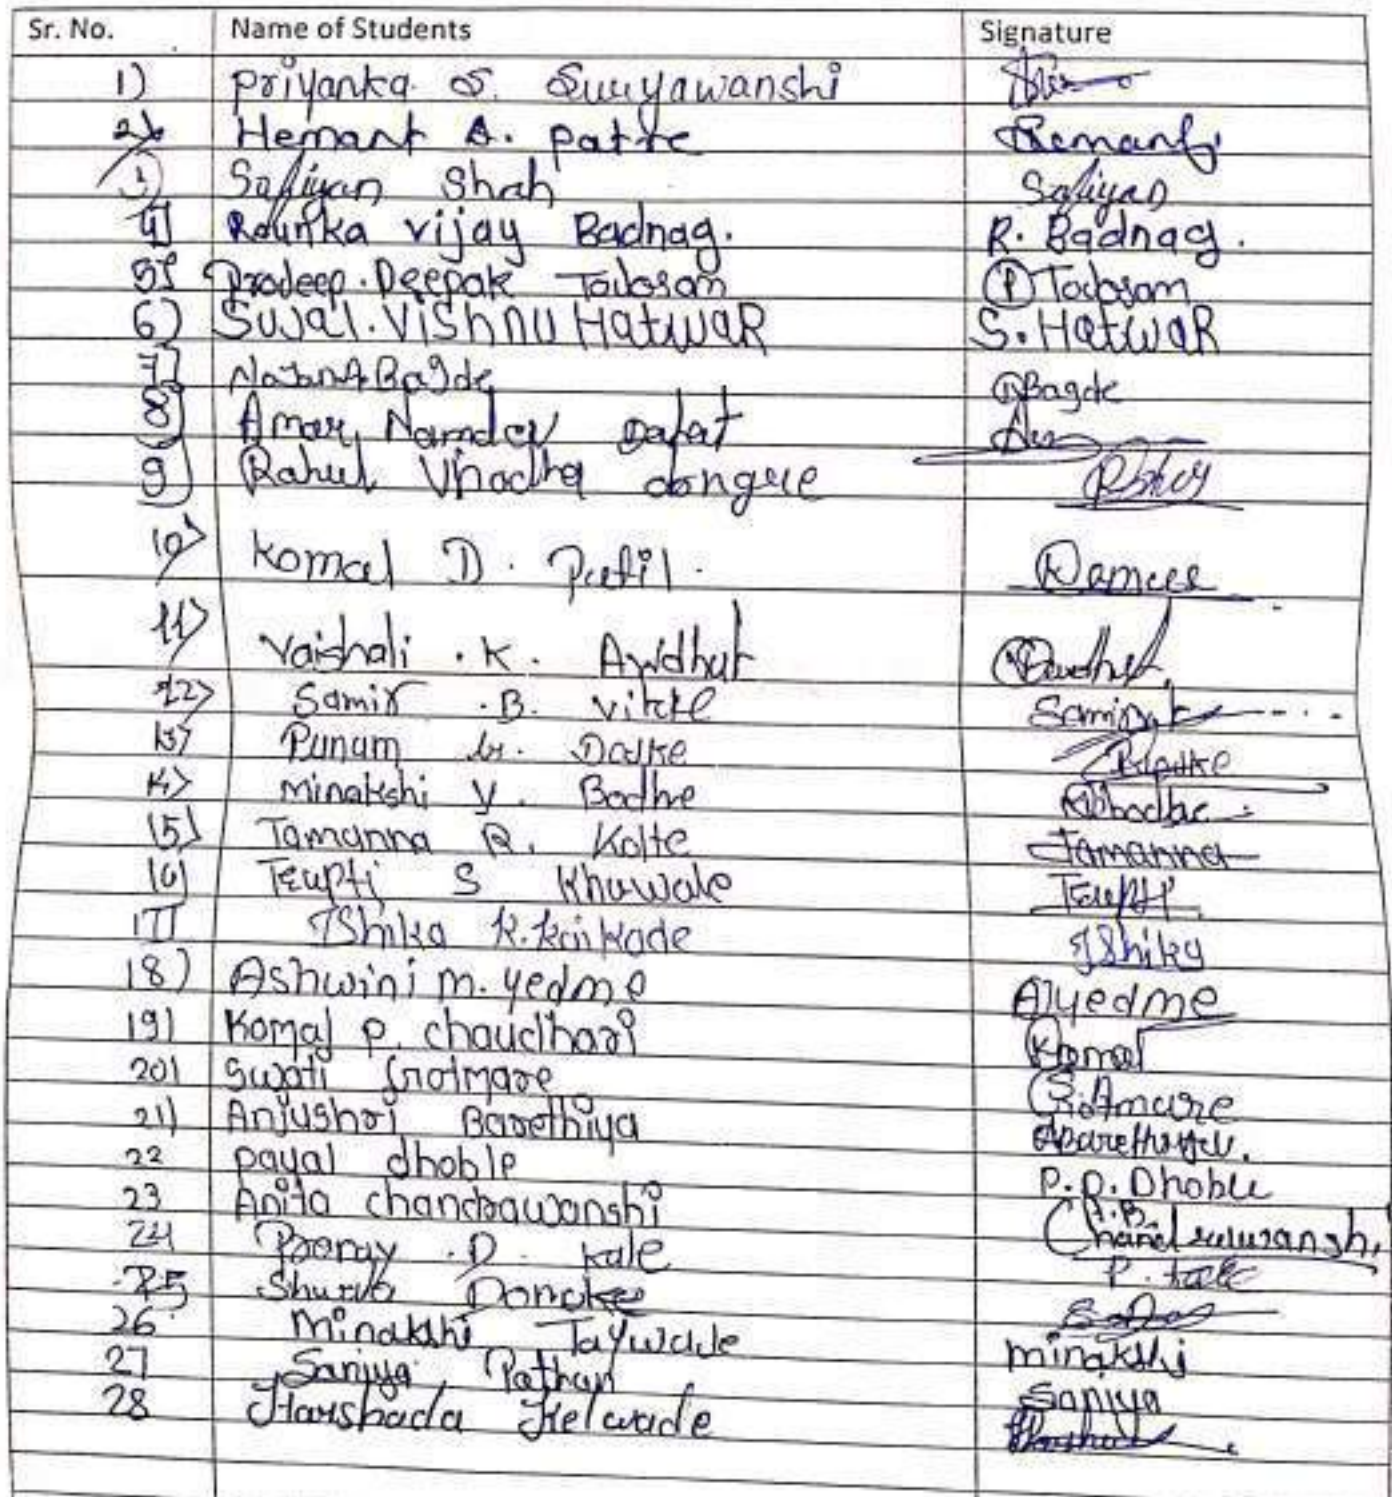 Sr. No. Name of Students Signature
1) Priyanka S. Suryawanshi
2) Hemant A. Patre Hemant
3) Safiyan Shah Safiyan
4) Raunka vijay Badnag. R. Badnag.
5) Pradeep. Deepak Todosam P Todosam
6) Sujal. Vishnu HatwaR S. HatwaR
7) Bagde Bagde
8) Amar Namdev
9) Rahul dongre
10) Komal D. Patil.
11) Vaishali . K. Avdhut Avdhut
12) Samir . B.
13) Punam
14) Minakshi V. Bodhe
15) Tamanna R. Kolte Tamanna
16) Trupti S Khawale Trupti
17) Ishika K. Kaikade Ishika
18) Ashwini m. yedme Ayedme
19) Komal P. chaudhari Komal
20) Swati Gotmare Gotmare
21) Anjushri Barethiya ABarethiya.
22 payal dhoble P.D. Dhoble
23 Anita chandrawanshi A.B. Chandrawanshi
24 D. Kale P. Kale
25
26 Minakshi Taywade minakshi
27 Saniya Pathan Saniya
28 Harshada Kelwade